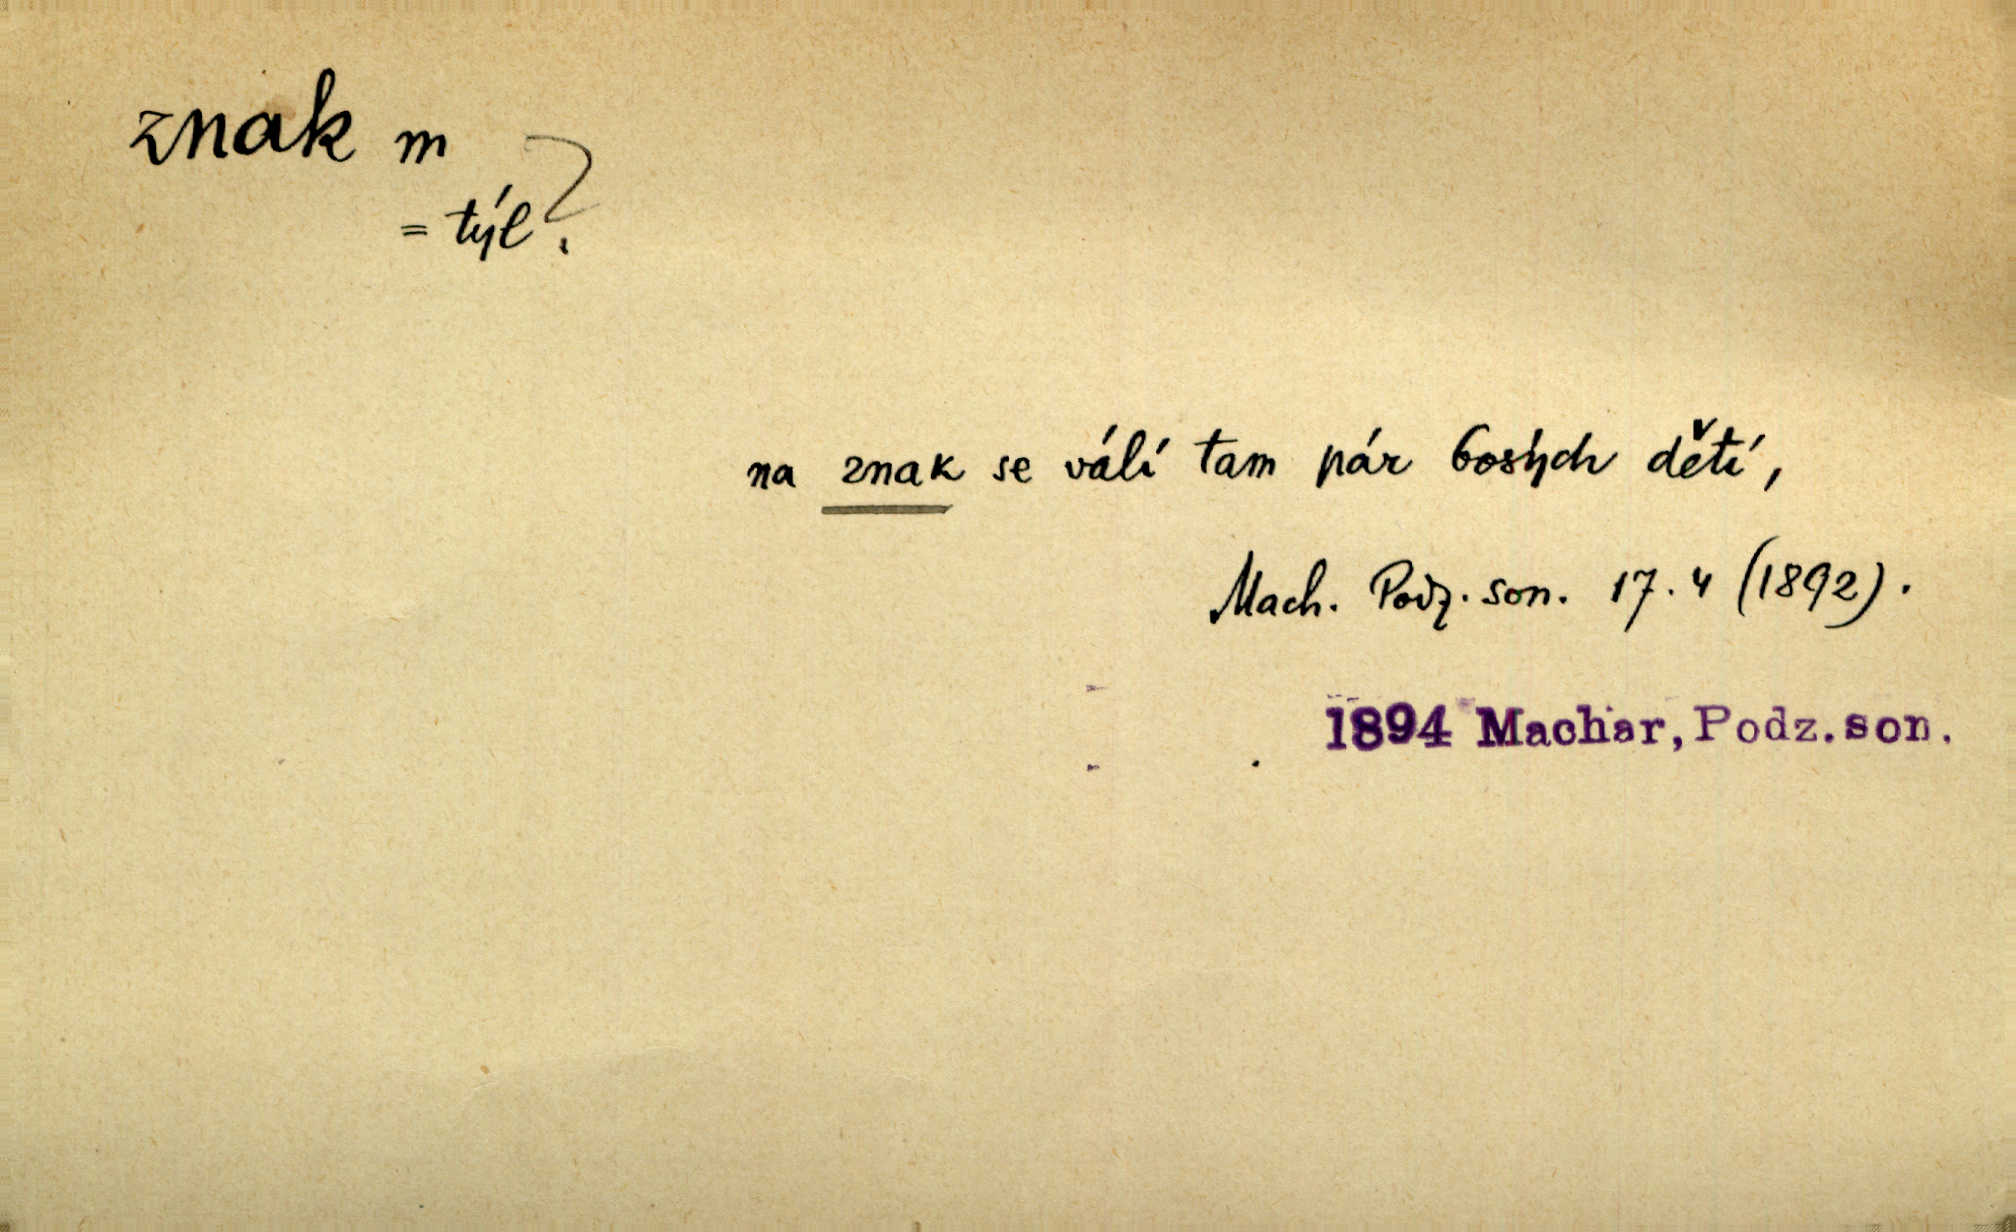 znak m
= týl?
na znak se válí tam pár bosých dětí,
Mach. Podz. son. 17. 4 (1892).
1894 Machar, Podz. son.